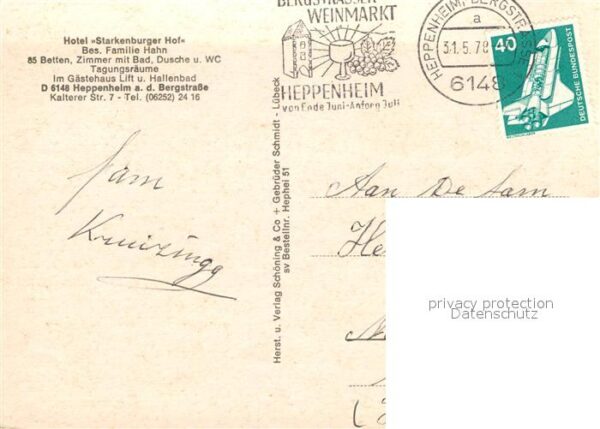 Hotel »Starkenburger Hof«
Bes. Familie Hahn
85 Betten, Zimmer mit Bad, Dusche u. WC
Tagungsräume
Im Gästehaus Lift u. Hallenbad
D 6148 Heppenheim a. d. Bergstraße
Kalterer Str. 7 - Tel. (06252) 24 16
BERGSTRÄSSER
WEINMARKT
HEPPENHEIM
von Ende Juni-Anfang Juli
HEPPENHEIM, BERGSTRASSE
a
31.5.78
6148
40
DEUTSCHE BUNDESPOST
Herst. u. Verlag Schöning & Co + Gebrüder Schmidt - Lübeck
sv Bestellnr. Hephei 51
fam
Kruizinga
Aan De fam
He
privacy protection
Datenschutz